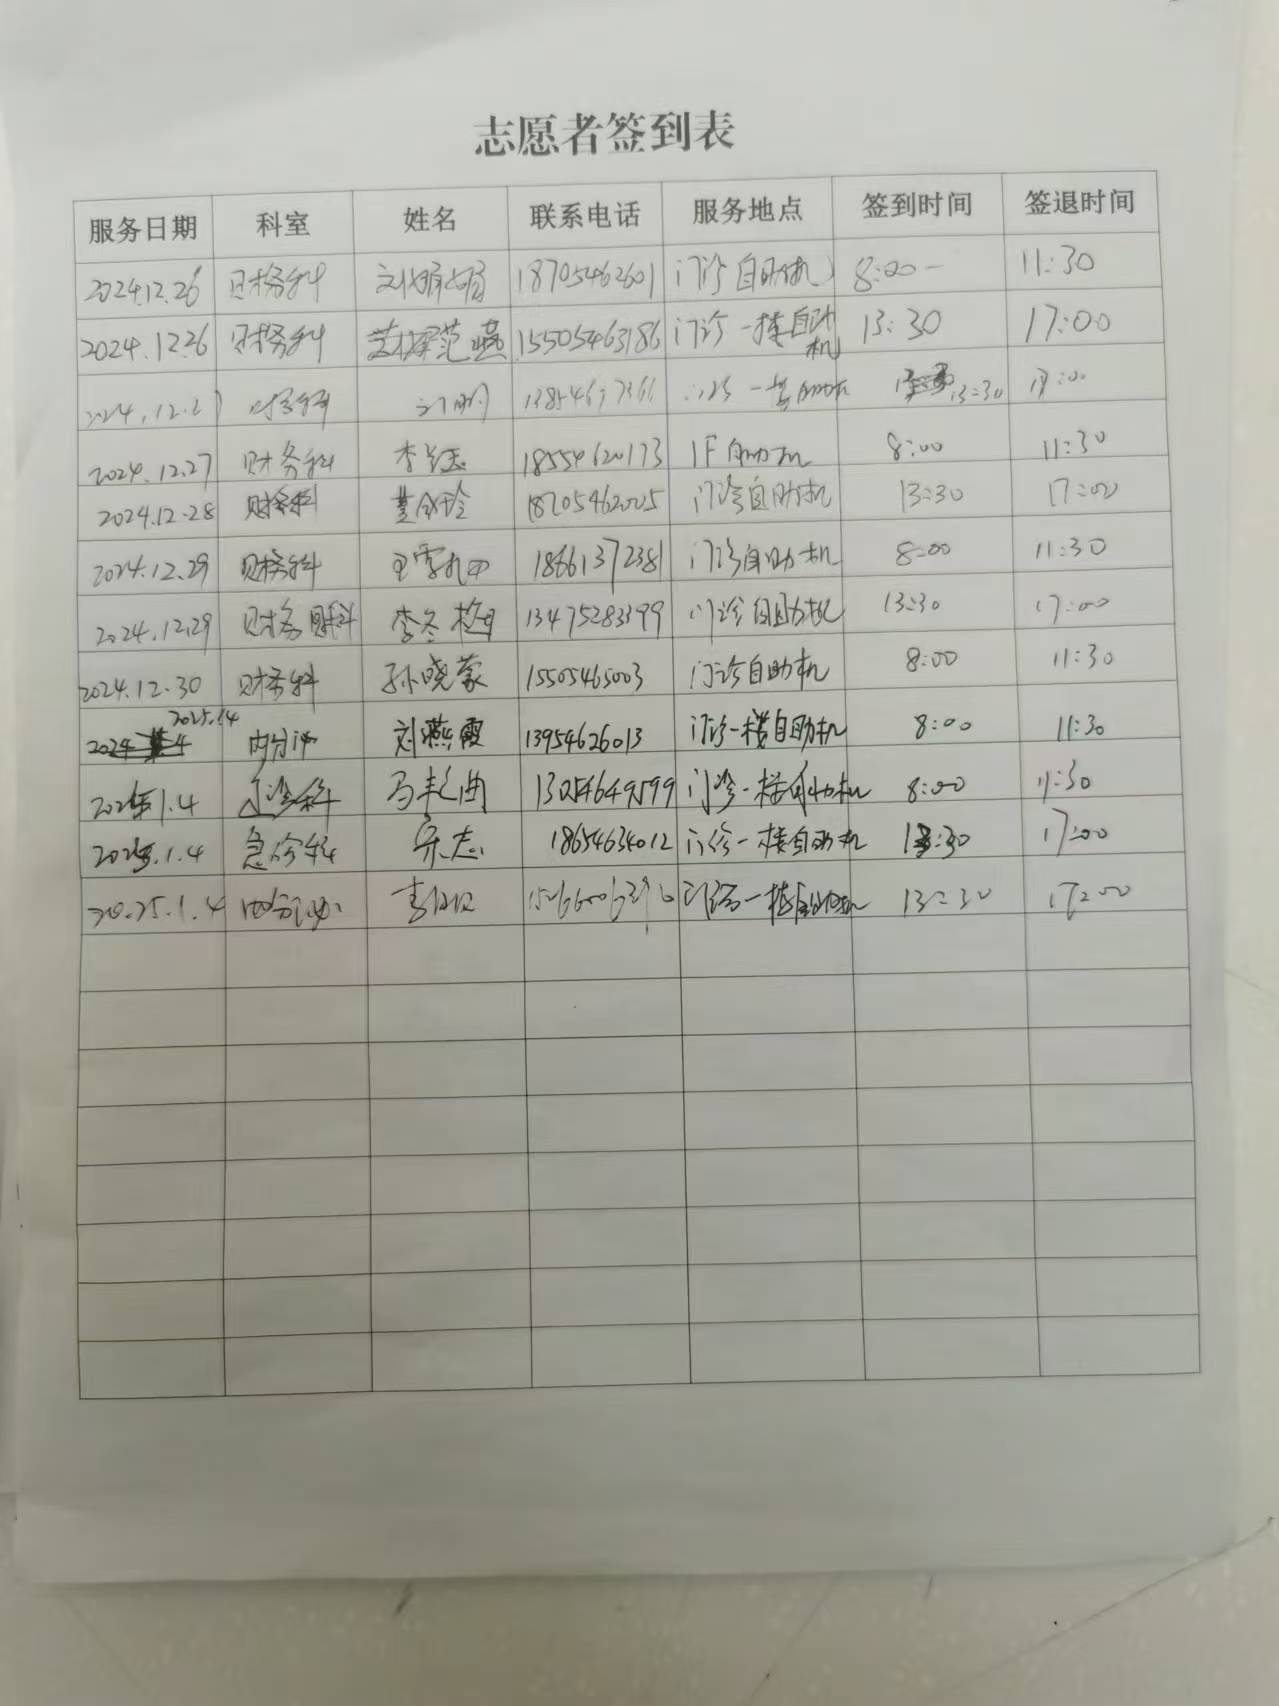 志愿者签到表
服务日期 科室 姓名 联系电话 服务地点 签到时间 签退时间
2024.12.26 财务科 18705462601 门诊自助机 8:00- 11:30
2024.12.26 财务科 15505463186 门诊一楼自助机 13:30 17:00
2024.12.27 财务科 一楼自助机 13:30 17:00
2024.12.27 财务科 18554620173 1F自助机 8:00 11:30
2024.12.28 财务科 18705462025 门诊自助机 13:30 17:00
2024.12.29 财务科 18661372381 门诊自助机 8:00 11:30
2024.12.29 财务科 李冬梅 13475283399 门诊自助机 13:30 17:00
2024.12.30 财务科 孙晓蒙 15505465003 门诊自助机 8:00 11:30
2025.1.4 内分泌 刘燕霞 13954626013 门诊一楼自助机 8:00 11:30
2025.1.4 13054649599 门诊一楼自助机 8:00 11:30
2025.1.4 急诊科 宋志 18654634012 门诊一楼自助机 13:30 17:00
2025.1.4 内分泌 门诊一楼自助机 13:30 17:00